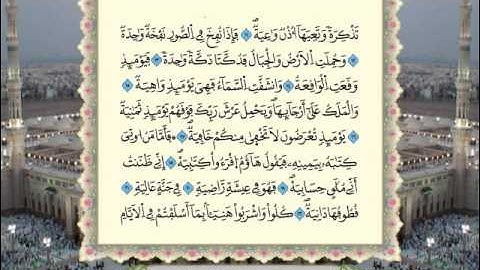 تَذْكِرَةً وَتَعِيَهَآ أُذُنٌ وَاعِيَةٌ ۝ فَإِذَا نُفِخَ فِي الصُّورِ نَفْخَةٌ وَاحِدَةٌ
۝ وَحُمِلَتِ الْأَرْضُ وَالْجِبَالُ فَدُكَّتَا دَكَّةً وَاحِدَةً ۝ فَيَوْمَئِذٍ
وَقَعَتِ الْوَاقِعَةُ ۝ وَانْشَقَّتِ السَّمَآءُ فَهِيَ يَوْمَئِذٍ وَاهِيَةٌ ۝
وَالْمَلَكُ عَلَىٰٓ أَرْجَآئِهَا وَيَحْمِلُ عَرْشَ رَبِّكَ فَوْقَهُمْ يَوْمَئِذٍ ثَمَٰنِيَةٌ
۝ يَوْمَئِذٍ تُعْرَضُونَ لَا تَخْفَىٰ مِنْكُمْ خَافِيَةٌ ۝ فَأَمَّا مَنْ أُوتِيَ
كِتَٰبَهُ بِيَمِينِهِ فَيَقُولُ هَآؤُمُ اقْرَءُوا كِتَٰبِيَهْ ۝ إِنِّي ظَنَنْتُ
أَنِّي مُلَٰقٍ حِسَابِيَهْ ۝ فَهُوَ فِي عِيشَةٍ رَاضِيَةٍ ۝ فِي جَنَّةٍ عَالِيَةٍ ۝
قُطُوفُهَا دَانِيَةٌ ۝ كُلُوا وَاشْرَبُوا هَنِيٓئًا بِمَآ أَسْلَفْتُمْ فِي الْأَيَّامِ